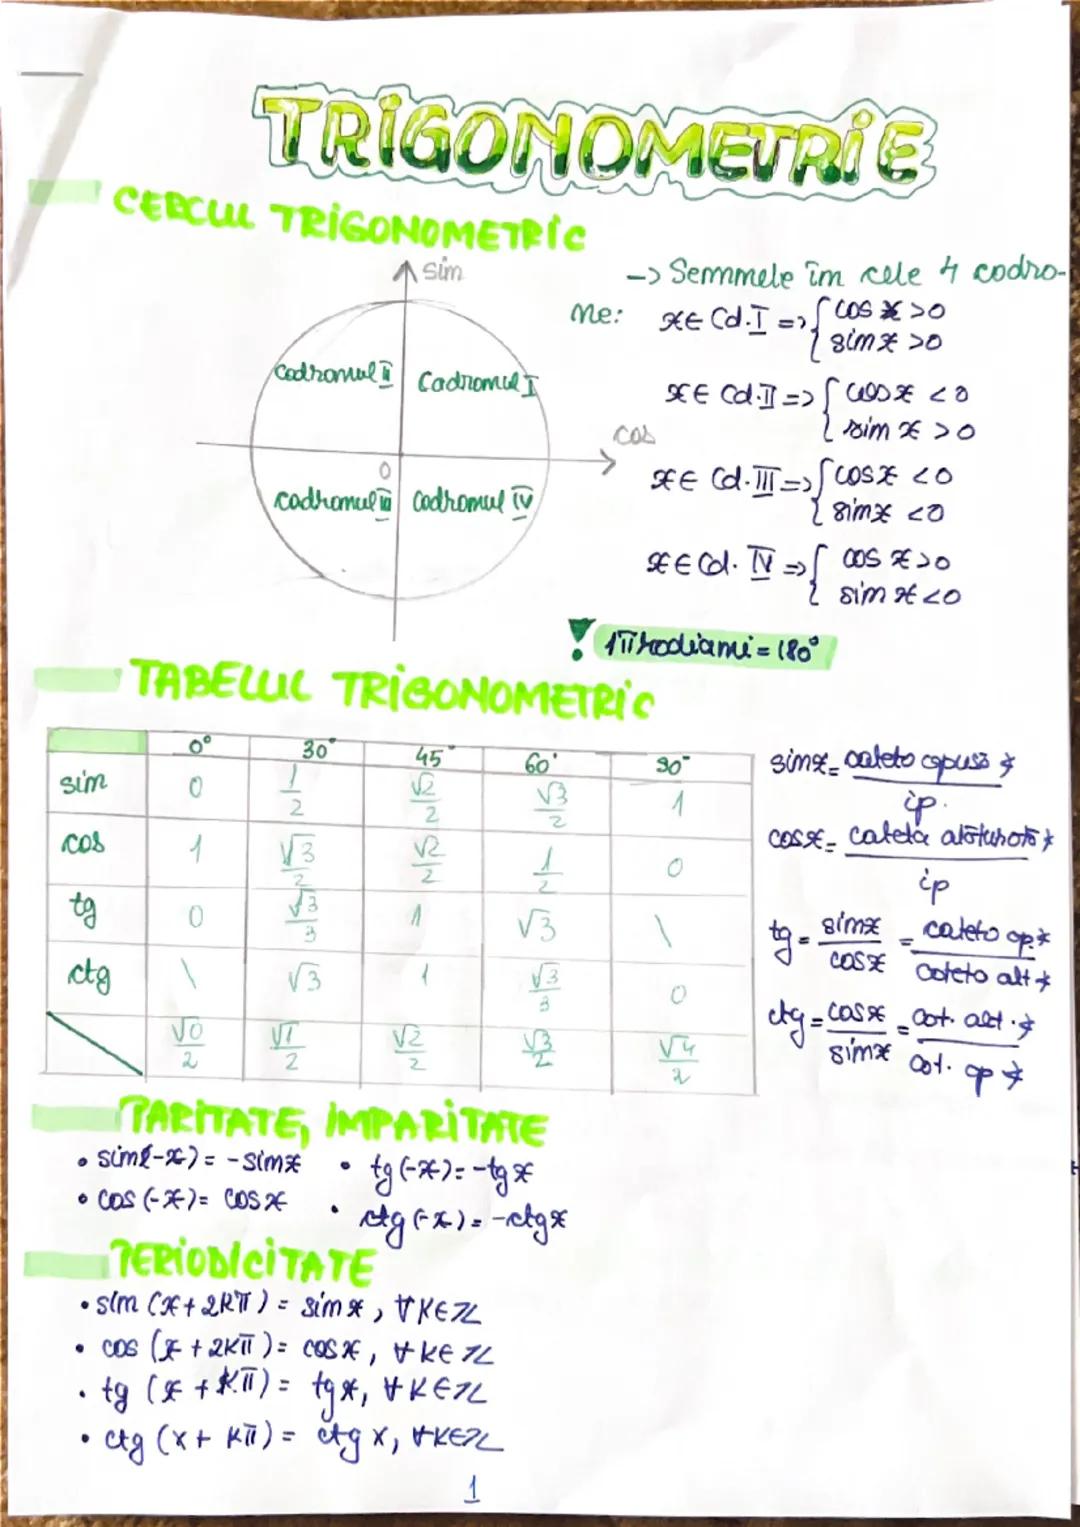 TRIGONOMETRIE
CERCUL TRIGONOMETRIC
sin
cos
0
Cadranul II
Cadranul I
cadranul III
Cadranul IV
-> Semnele în cele 4 cadra-
ne: x∈ Cd.I => { cos x >0
sin x >0
x∈ Cd.II => { cos x <0
sin x >0
x∈ Cd.III => { cos x <0
sin x <0
x∈ Cd. IV => { cos x >0
sin x <0
! 1π radiani = 180°
TABELUL TRIGONOMETRIC
0° 30° 45° 60° 90°
sin 0 1/2 √2/2 √3/2 1
cos 1 √3/2 √2/2 1/2 0
tg 0 √3/3 1 √3 \
ctg \ √3 1 √3/3 0
√0/2 √1/2 √2/2 √3/2 √4/2
sinx = cateta opusă ∡ / ip.
cosx = cateta alăturată ∡ / ip
tg = sinx / cosx = cateta op.∡ / cateta alt ∡
ctg = cosx / sinx = cat. alt.∡ / cat. op ∡
PARITATE, IMPARITATE
• sin(-x) = -sinx • tg(-x) = -tgx
• cos(-x) = cosx • ctg(-x) = -ctgx
PERIODICITATE
• sin (x+2kπ) = sinx, ∀k∈ℤ
• cos (x+2kπ) = cosx, ∀k∈ℤ
• tg (x+kπ) = tgx, ∀k∈ℤ
• ctg (x+kπ) = ctg x, ∀k∈ℤ
1